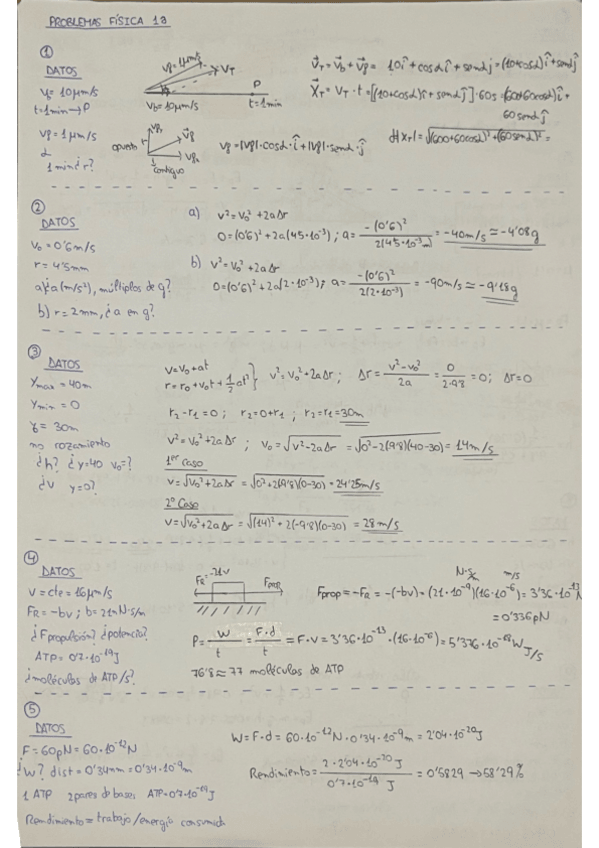 PROBLEMAS FÍSICA 1a
①
DATOS
v_b = 10μm/s
t=1min→P
v_f = 1μm/s
α
1min ¿r?
v_f=1μm/s
V_T
P
V_b=10μm/s
t=1min
opuesto
contiguo
v_f = |v_f|·cosα·î + |v_f|·senα·ĵ
V_T = V_b + V_f = 10î + cosαî + senαĵ = (10+cosα)î + senαĵ
X_T = V_T · t = [(10+cosα)î + senαĵ]·60s = (600+60cosα)î +
60senαĵ
d|X_T| = √((600+60cosα)²+(60senα)²) =
②
DATOS
V₀ = 0'6m/s
r = 4'5mm
a) ¿a (m/s²), múltiplos de g?
b) r = 2mm, ¿a en g?
a) v² = v₀² + 2aΔr
0=(0'6)² + 2a(4'5·10⁻³); a = -(0'6)² / 2(4'5·10⁻³m) = -40m/s ≈ -4'08g
b) v² = v₀² + 2aΔr
0=(0'6)² + 2a(2·10⁻³); a = -(0'6)² / 2(2·10⁻³) = -90m/s ≈ -9'18g
③
DATOS
Ymax = 40m
Ymin = 0
= 30m
no rozamiento
¿h? ¿y=40 v₀=?
¿v y=0?
v = v₀+at
r = r₀ + v₀t + 1/2 at² } v² = v₀² + 2aΔr; Δr = (v²-v₀²)/2a = 0/(2·9'8) = 0; Δr=0
r₂-r₁=0; r₂=0+r₁; r₂=r₁=30m
v² = v₀² + 2aΔr; v₀ = √(v²-2aΔr) = √(0²-2(-9'8)(40-30)) = 14m/s
1er Caso
v = √(v₀²+2aΔr) = √(0²+2(-9'8)(0-30)) = 24'25m/s
2º Caso
v = √(v₀²+2aΔr) = √((14)²+2(-9'8)(0-30)) = 28m/s
④
DATOS
v = cte = 16μm/s
F_R = -bv; b=21nN·s/m
¿Fpropulsión? ¿potencia?
ATP = 0'7·10⁻¹⁹J
¿moléculas de ATP/s?
F_R=-21v
Fprop
N·s/m m/s
Fprop = -F_R = -(-bv) = (21·10⁻⁹)(16·10⁻⁶) = 3'36·10⁻¹³N
= 0'336pN
P = W/t = F·d/t = F·v = 3'36·10⁻¹³·(16·10⁻⁶) = 5'376·10⁻¹⁸W J/s
76'8 ≈ 77 moléculas de ATP
⑤
DATOS
F = 60pN = 60·10⁻¹²N
¿W? dist = 0'34nm = 0'34·10⁻⁹m
1 ATP 2 pares de bases ATP=0'7·10⁻¹⁹J
Rendimiento = trabajo/energía consumida
W = F·d = 60·10⁻¹²N·0'34·10⁻⁹m = 2'04·10⁻²⁰J
Rendimiento = 2·2'04·10⁻²⁰J / 0'7·10⁻¹⁹ J = 0'5829 → 58'29%